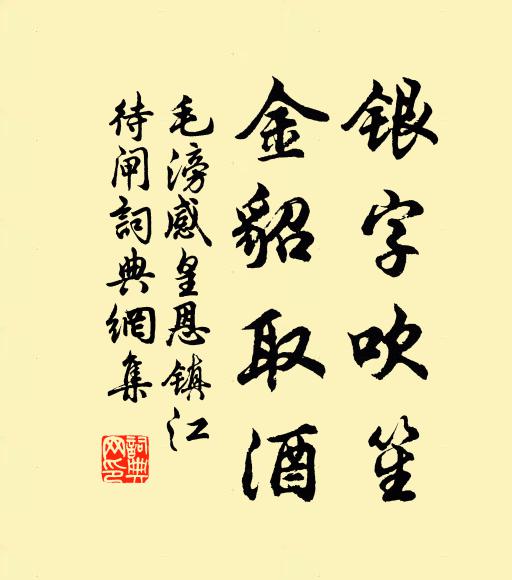 银字吹笙
金貂取酒
毛滂感皇恩镇江
待闸詞典網集
詞典网印